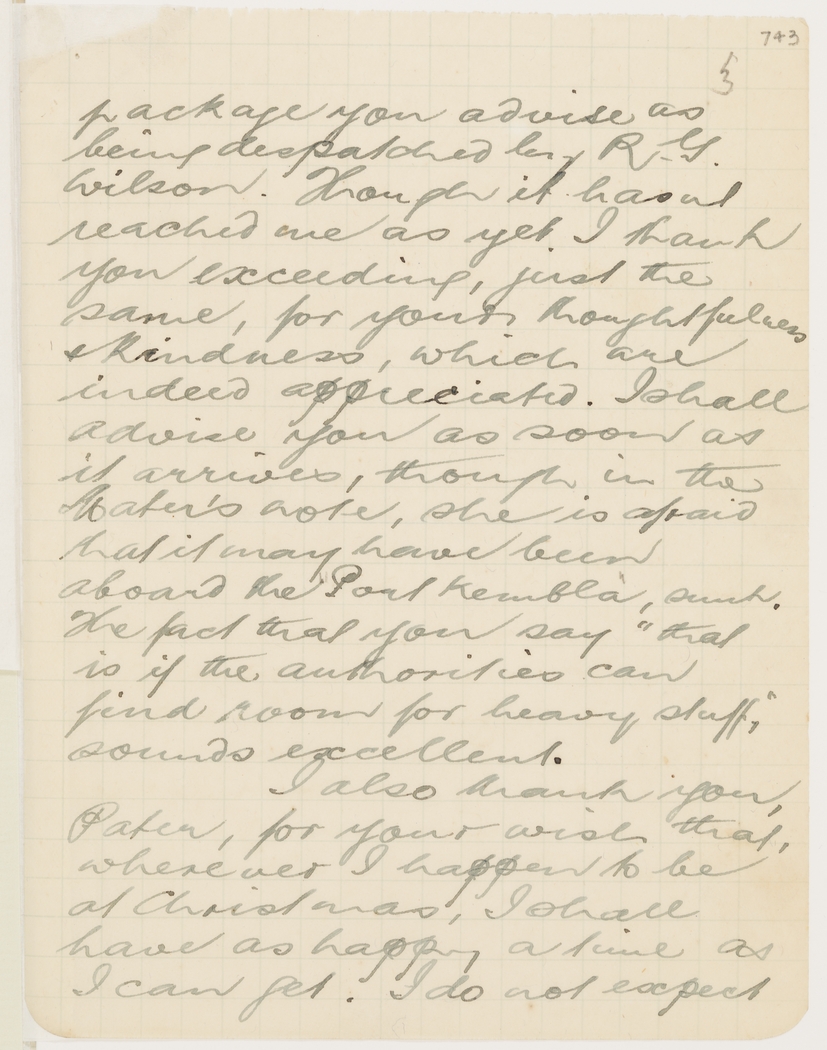 743
5
package you advise as
being despatched by R. G.
Wilson. Though it hasnt
reached me as yet I thank
you exceeding, just the
same, for your thoughtfulness
& kindness, which are
indeed appreciated. I shall
advise you as soon as
it arrives, though in the
Mater's note, she is afraid
that it may have been
aboard the "Port Kembla", sunk.
The fact that you say "that
is if the authorities can
find room for heavy stuff,"
sounds excellent.
I also thank you,
Pater, for your wish that,
wherever I happen to be
at Christmas, I shall
have as happy a time as
I can get. I do not expect